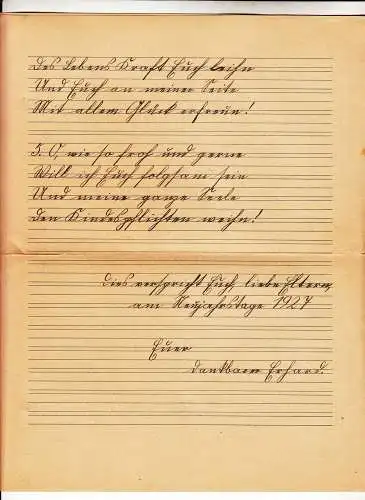 Des Lebens Kraft Euch leihn
Und Euch an meiner Seite
Mit allem Glück erfreun!
5. O, wie so froh und gerne
Will ich Euch folgsam sein
Und meine ganze Seele
Den Kindespflichten weihn!
Dies verspricht Euch, liebe Eltern,
am Neujahrstage 1927
Euer
dankbarer Erhard.